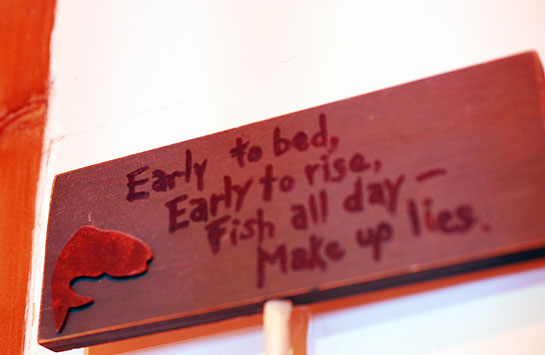 Early to bed,
Early to rise,
Fish all day —
Make up lies.